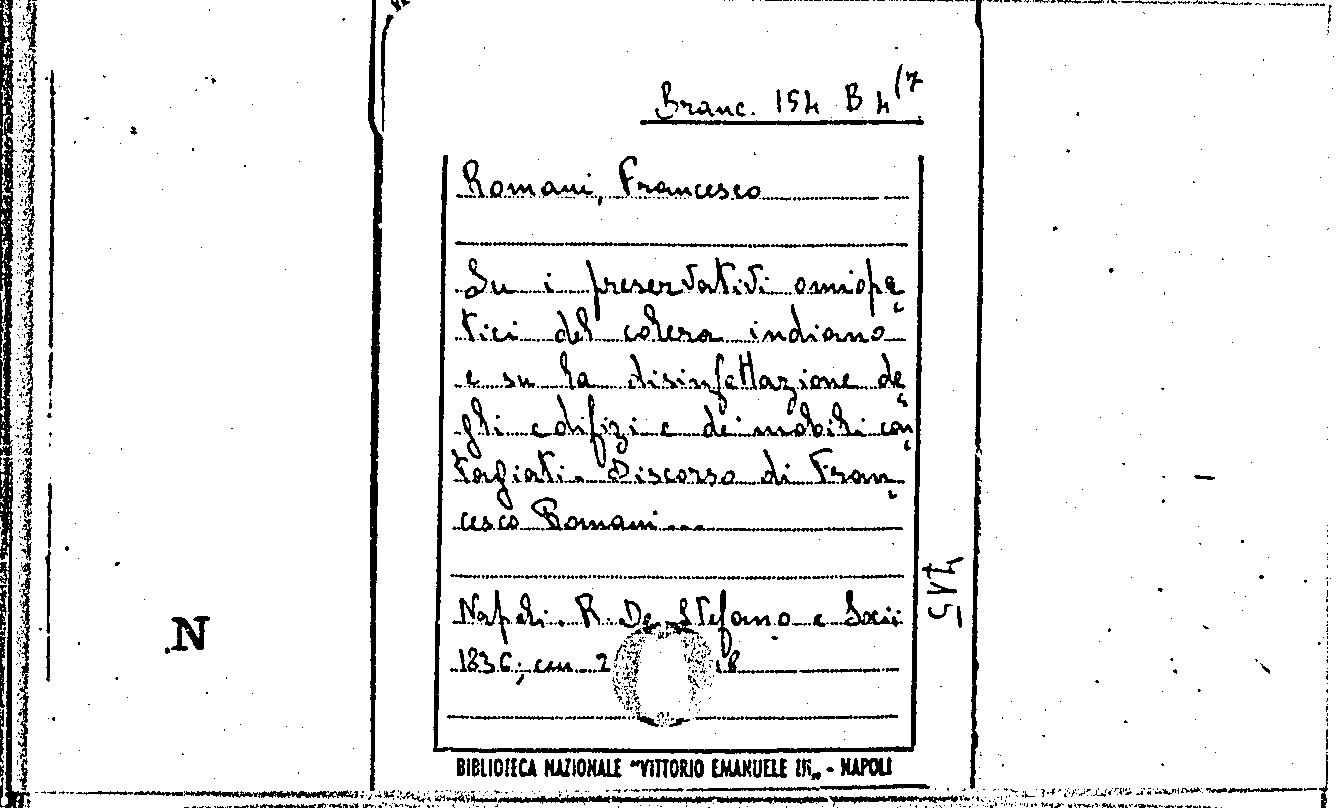 Branc. 154 B 4(7
Romani, Francesco
Su i preservativi omiopa-
tici del colera indiano
e su la disinfettazione de-
gli edifizi e de' mobili con-
tagiati. Discorso di Fran-
cesco Romani...
Napoli. R. De Stefano e Socii
1836; cm 2
18
715
N
BIBLIOTECA NAZIONALE "VITTORIO EMANUELE III„ - NAPOLI